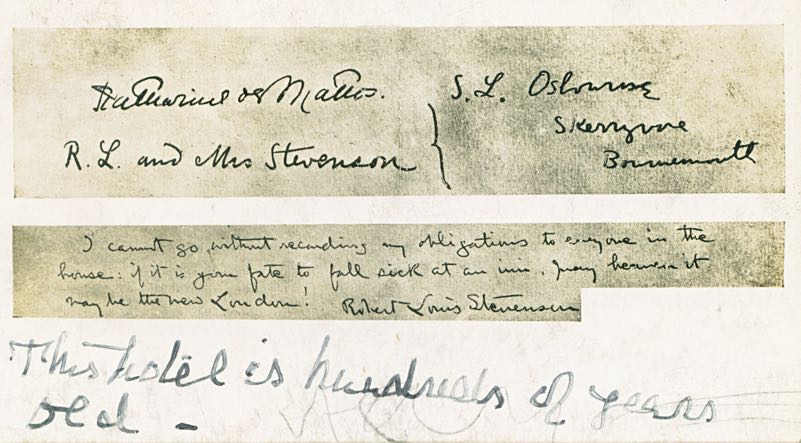 Katharine de Mattos. S. L. Osbourne
Skerryvore
R. L. and Mrs Stevenson Bournemouth
I cannot go without recording my obligations to everyone in the
house: if it is your fate to fall sick at an inn, pray heaven it
may be the New London! Robert Louis Stevenson
This hotel is hundreds of years
old -